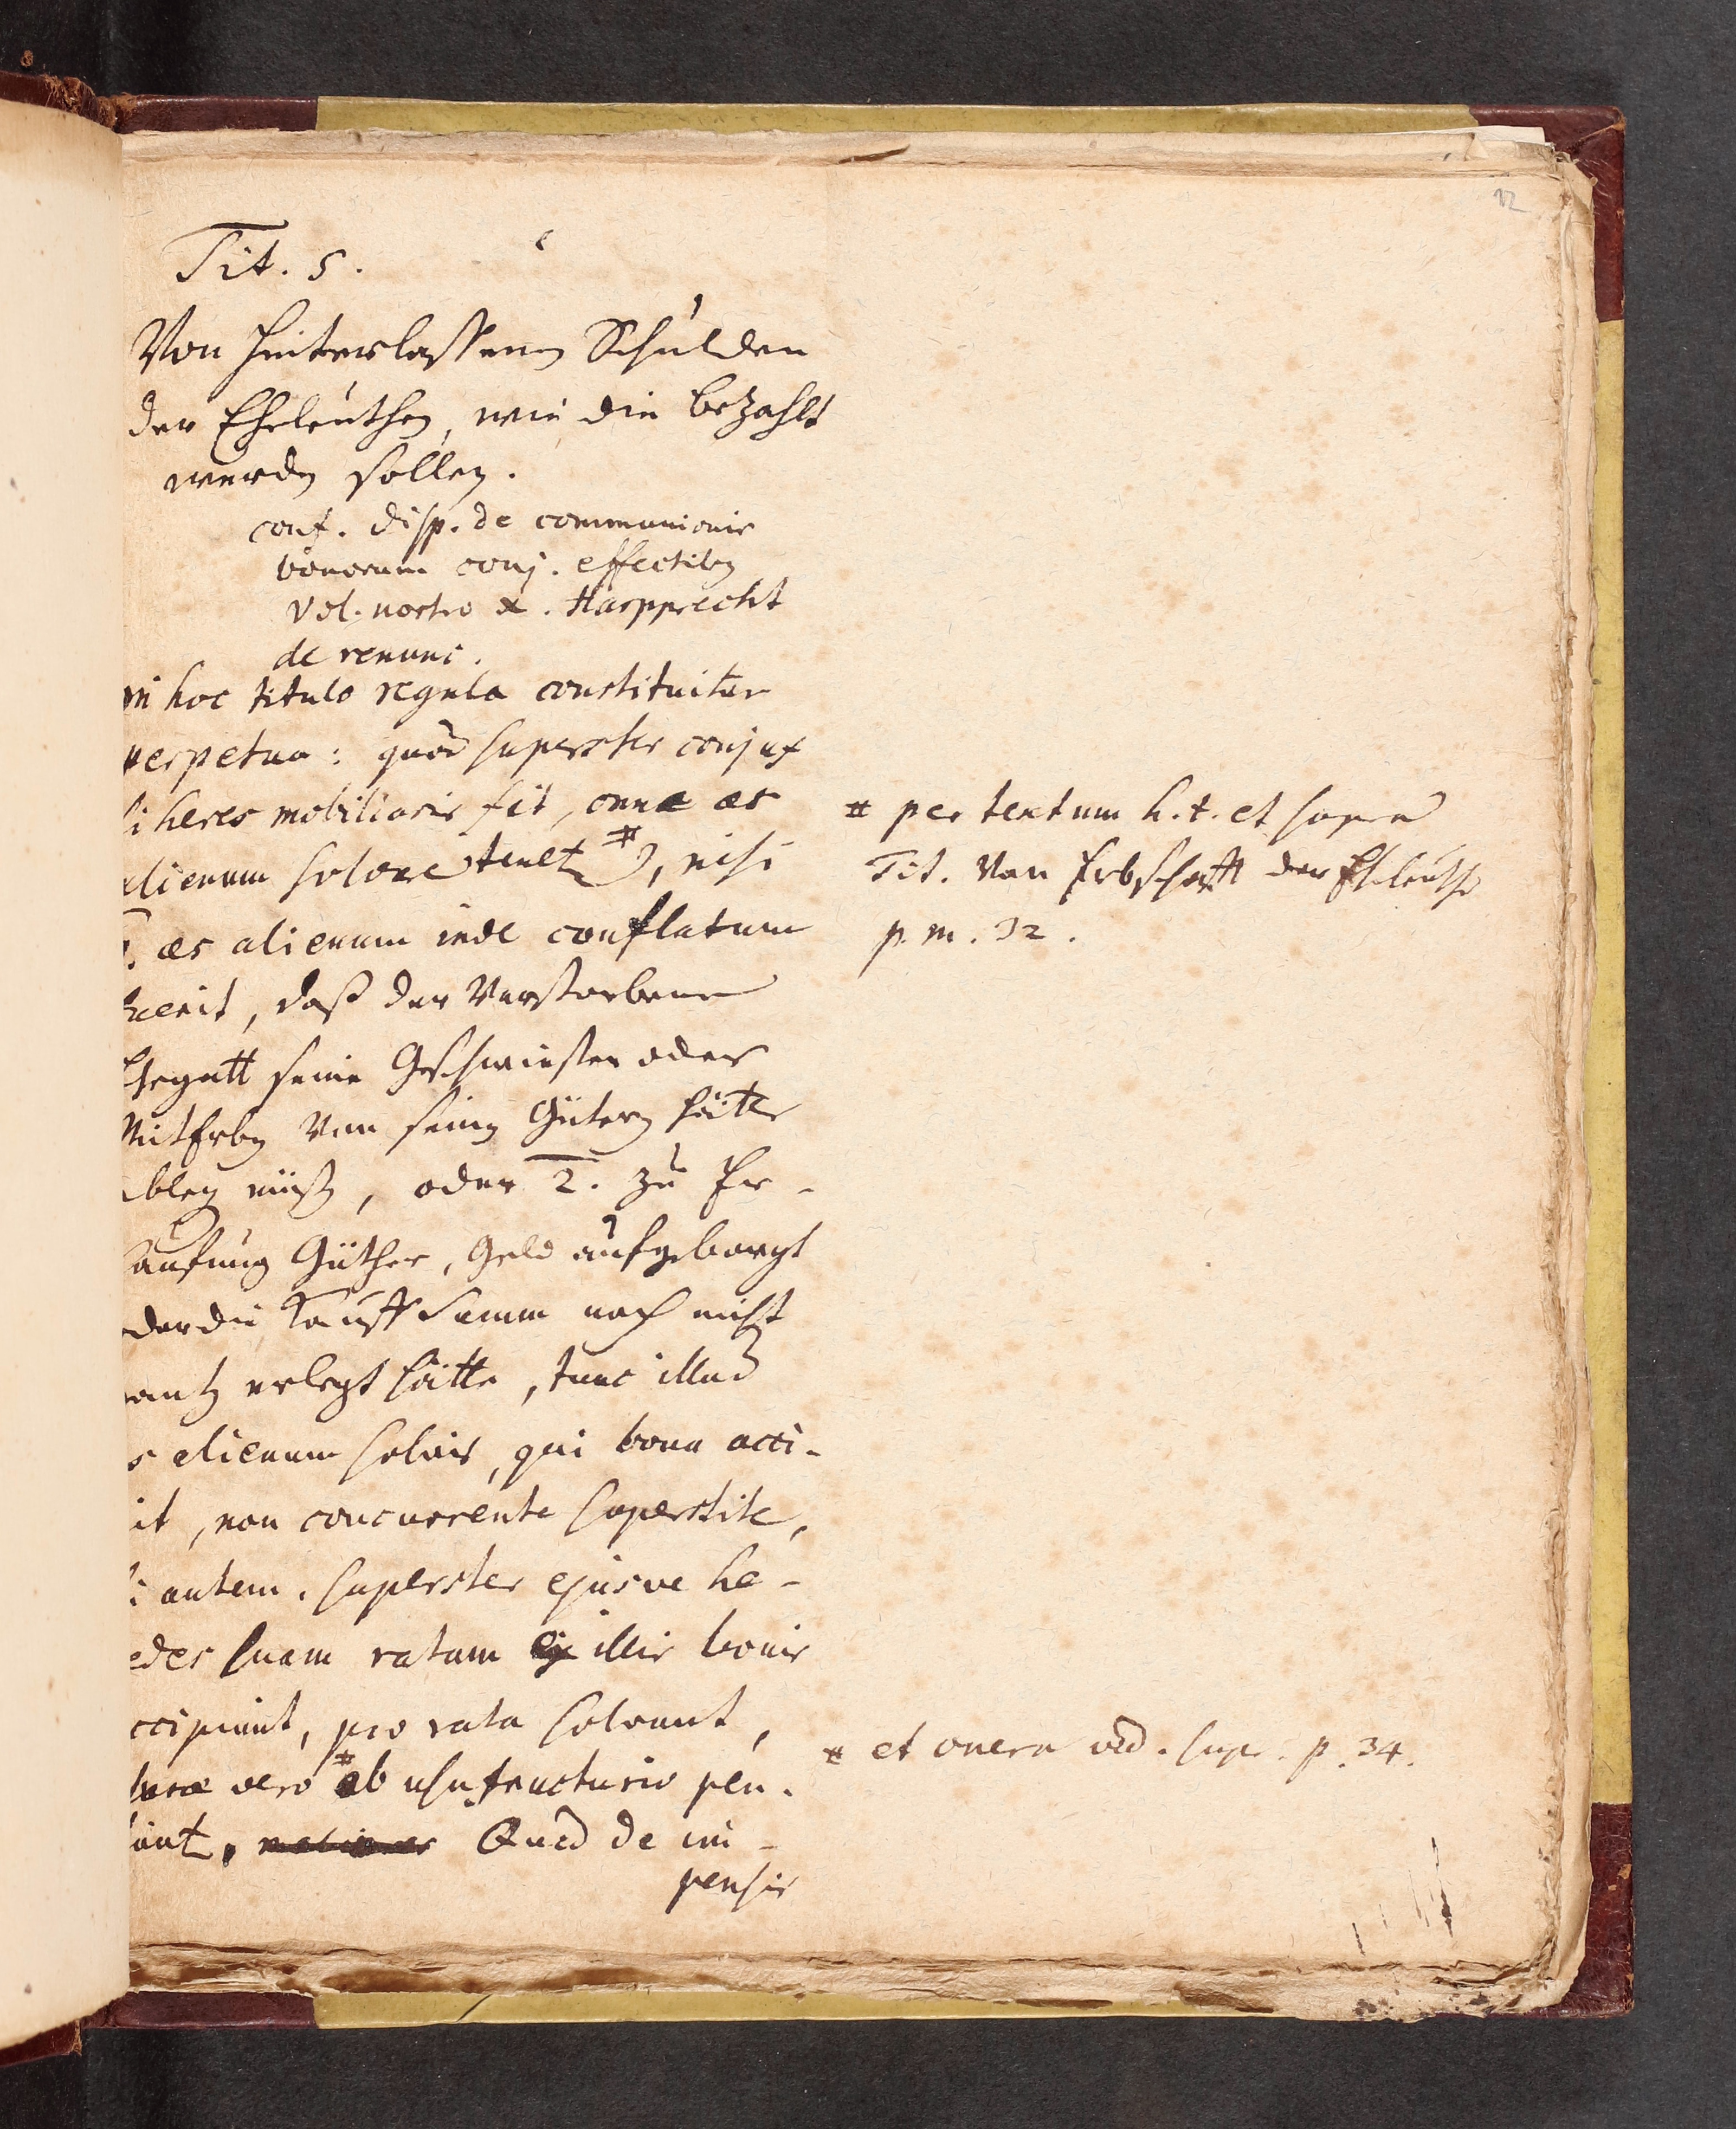 22
Tit. 5.
Von hinterlassenen Schulden
der Eheleuthen, wie die bezahlt
werden sollen.
conf. disp. de communionis
bonorum conj. effectibus
vol. nostro X. Harpprecht
de renunc.
in hoc titulo regula constituitur
perpetua: quod superstes conjux
si heres mobiliaris sit, omne æs
alienum solvere tenet #), nisi
1. æs alienum inde conflatum
fuerit, daß der Verstorbene
Ehegatt seine Geschwister oder
MitErben von seinen Gütern hätte
ablegen müssen, oder 2. zu Er-
kaufung Güther, Geld aufgeborgt
oder die Kauff Summ noch nicht
gantz erlegt hätte, tunc illud
æs alienum solvit, qui bona acci-
pit, non concurrente superstite,
si autem superstes ejusve he-
redes suam ratam ex illis bonis
accipiunt, pro rata solvunt,
usuræ vero # ab usufructuario pen-
dunt. Quod de im-
pensis
# per textum h. t. et supra
Tit. Von Erbschafft der Eheleuthe
p. m. 32.
# et onera vid. supr. p. 34.